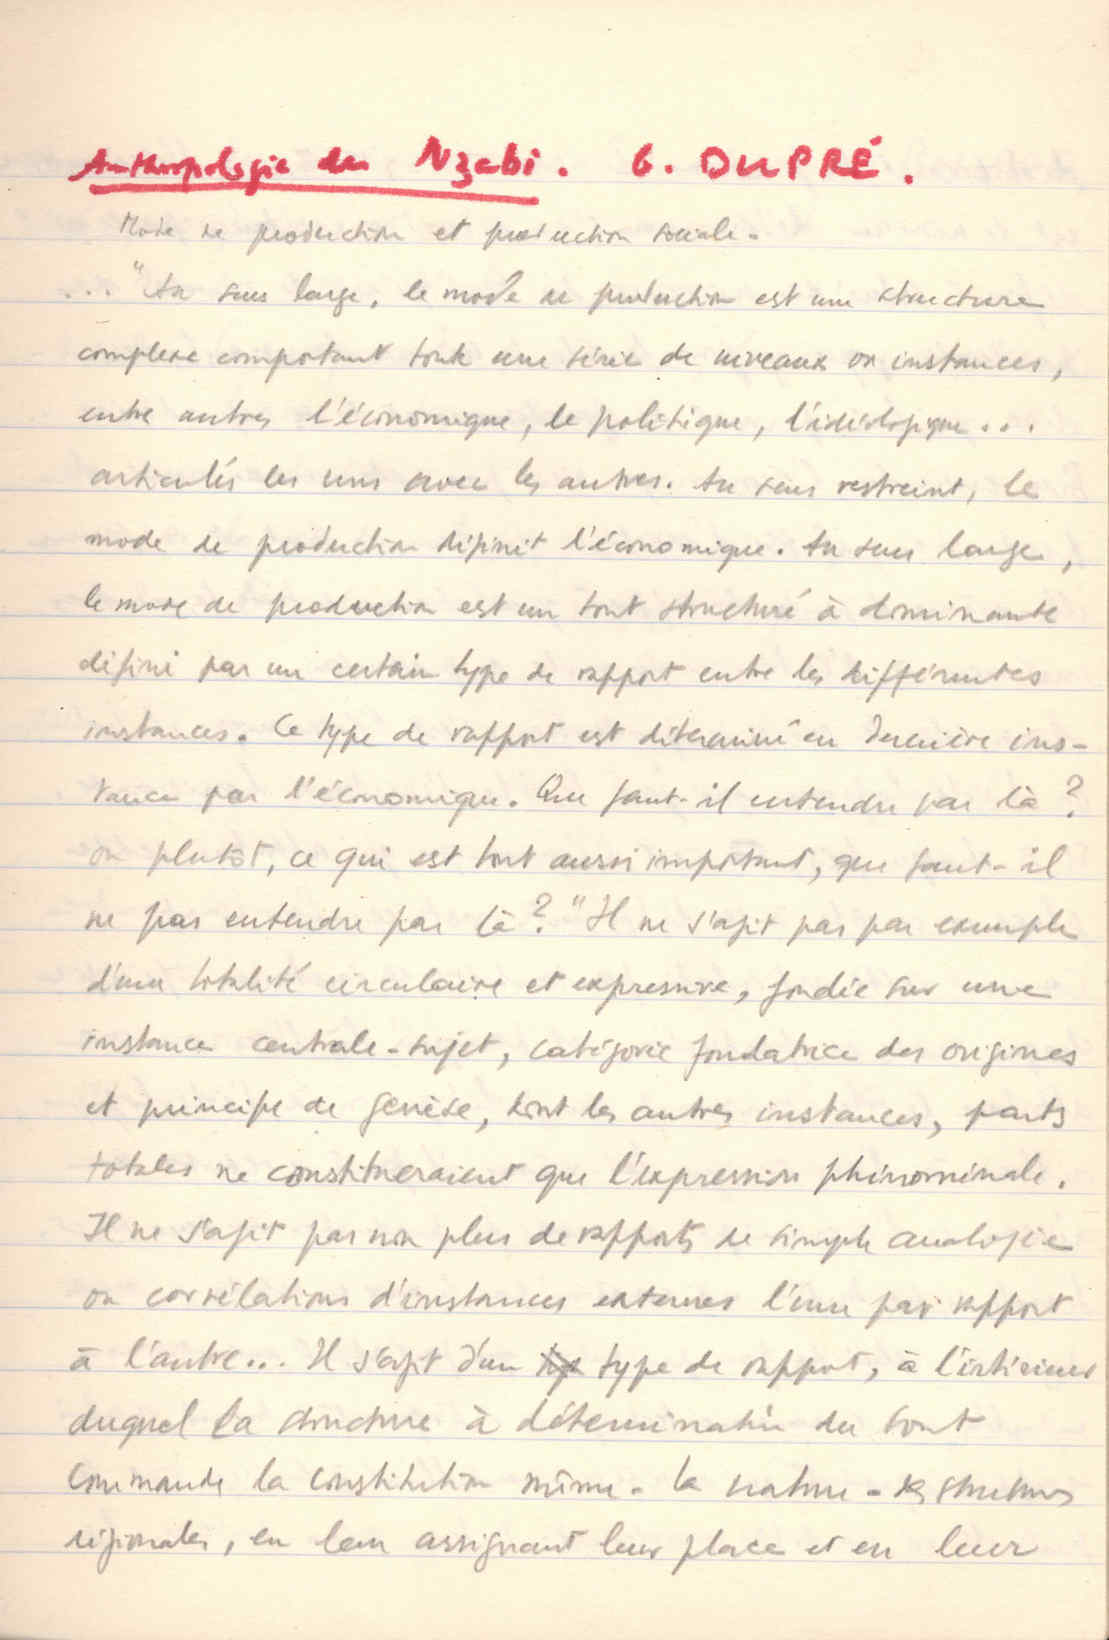 Anthropologie des Nzabi. G. DUPRÉ.
Mode de production et production sociale.
... "Au sens large, le mode de production est une structure
complexe comportant toute une série de niveaux ou instances,
entre autres l'économique, le politique, l'idéologique...
articulés les uns avec les autres. Au sens restreint, le
mode de production définit l'économique. Au sens large,
le mode de production est un tout structuré à dominante
défini par un certain type de rapport entre les différentes
instances. Ce type de rapport est déterminé en dernière ins-
tance par l'économique. Que faut-il entendre par là ?
ou plutôt, ce qui est tout aussi important, que faut-il
ne pas entendre par là ? "Il ne s'agit pas par exemple
d'une totalité circulaire et expressive, fondée sur une
instance centrale-sujet, catégorie fondatrice des origines
et principe de genèse, dont les autres instances, parts
totales ne constitueraient que l'expression phénoménale.
Il ne s'agit pas non plus de rapports de simple analogie
ou corrélations d'instances externes l'une par rapport
à l'autre... Il s'agit d'un type de rapport, à l'intérieur
duquel la structure à détermination du tout
commande la constitution même - la nature - des structures
régionales, en leur assignant leur place et en leur